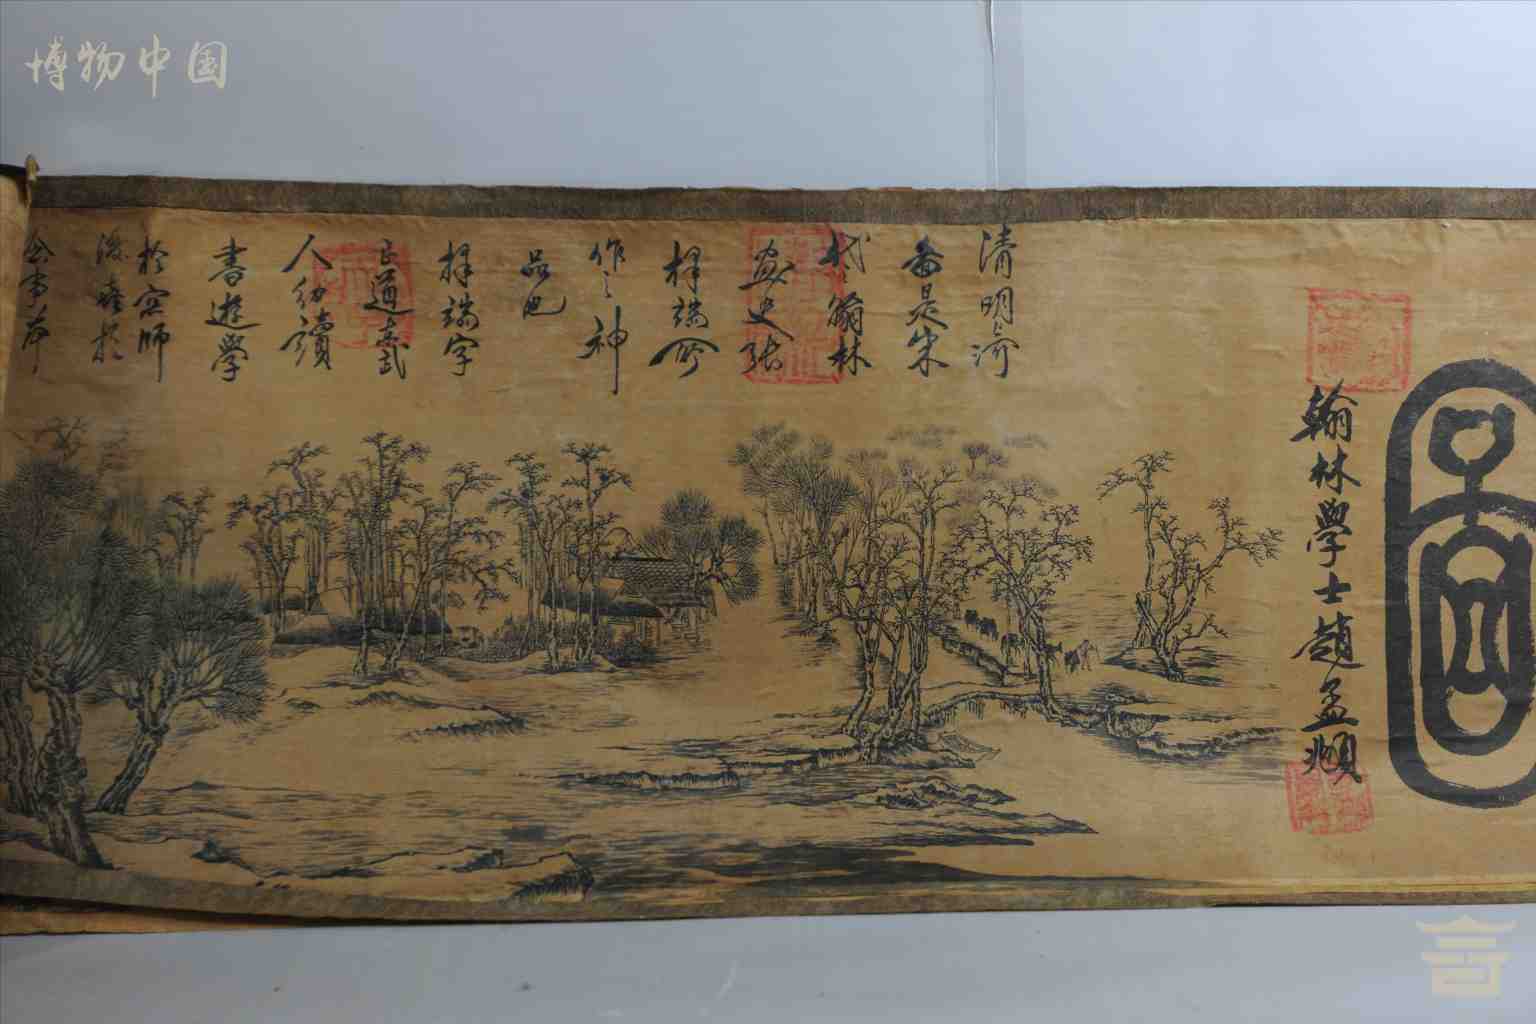 博物中国
翰林学士趙孟頫
清明上河
畣是朱
代翰林
畫史張
择端所
作之神
品也
择端字
正道東武
人幼讀
書遊學
於京師